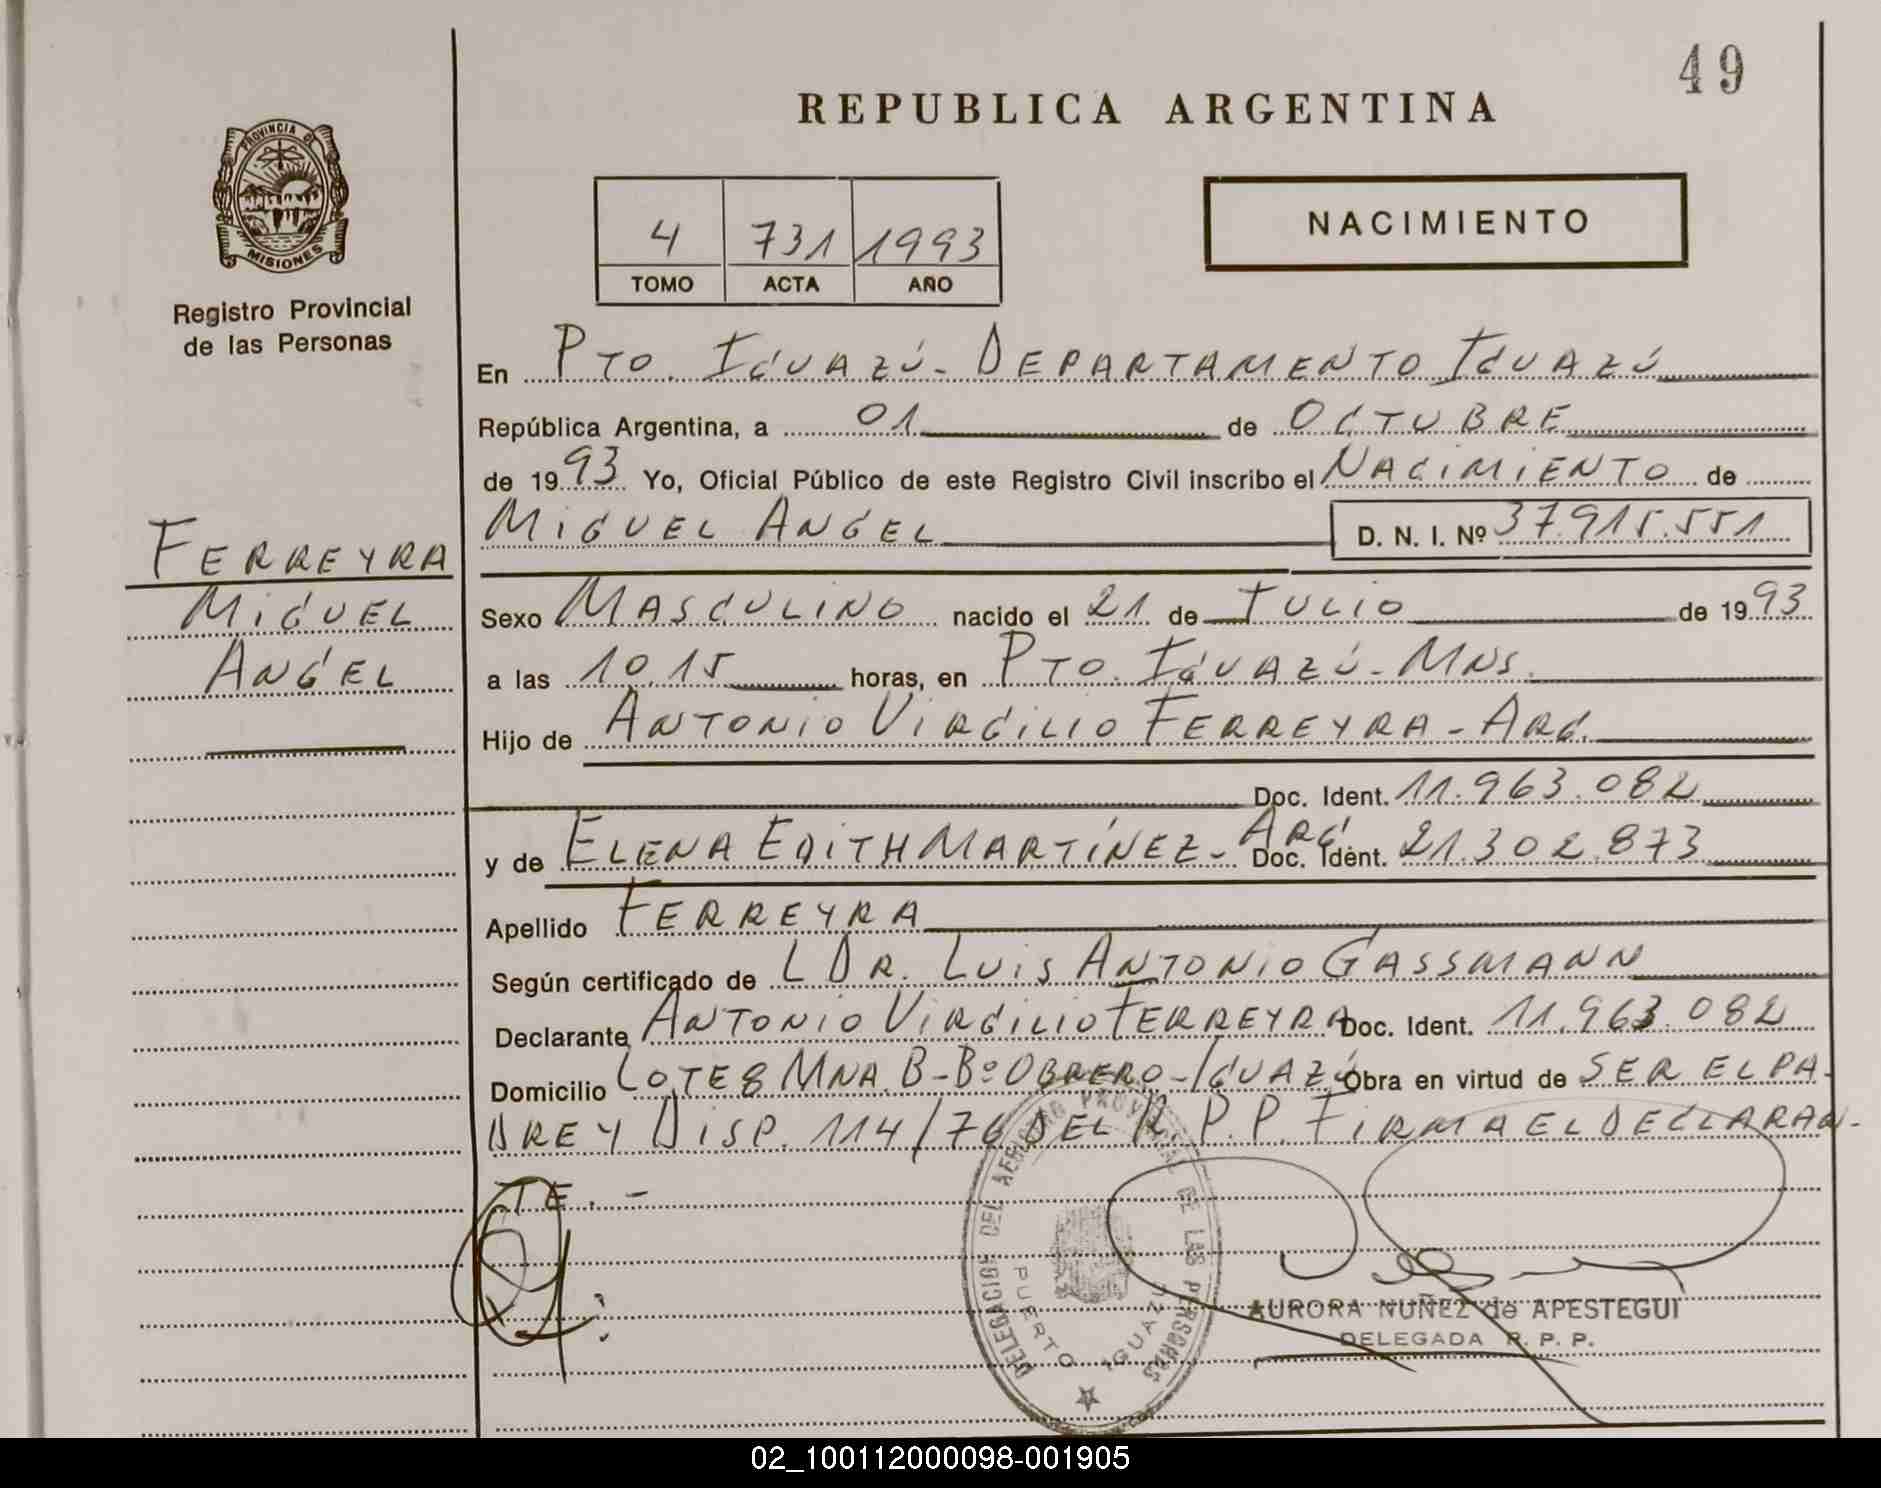 49
REPUBLICA ARGENTINA
PROVINCIA DE
MISIONES
Registro Provincial
de las Personas
4 731 1993
TOMO ACTA AÑO
NACIMIENTO
En PTO. IGUAZÚ - DEPARTAMENTO IGUAZÚ
República Argentina, a 01 de OCTUBRE
de 1993 Yo, Oficial Público de este Registro Civil inscribo el NACIMIENTO de
MIGUEL ANGEL D. N. I. Nº 37.915.551
FERREYRA
MIGUEL
ANGEL
Sexo MASCULINO nacido el 21 de JULIO de 1993
a las 10.15 horas, en PTO. IGUAZÚ - MNS.
Hijo de ANTONIO VIRGILIO FERREYRA - ARG.
Doc. Ident. 11.963.082
y de ELENA EDITH MARTÍNEZ - ARG. Doc. Ident. 21.302.873
Apellido FERREYRA
Según certificado de L DR. LUIS ANTONIO GASSMANN
Declarante ANTONIO VIRGILIO FERREYRA Doc. Ident. 11.963.082
Domicilio LOTE 8 MNA. B - Bº OBRERO - IGUAZÚ Obra en virtud de SER EL PA-
DRE Y DISP. 114/76 DEL R.P.P. FIRMA EL DECLARAN-
TE. -
DELEGACION DEL REGISTRO PROVINCIAL DE LAS PERSONAS
PUERTO IGUAZU
AURORA NUÑEZ de APESTEGUI
DELEGADA R. P. P.
02_100112000098-001905